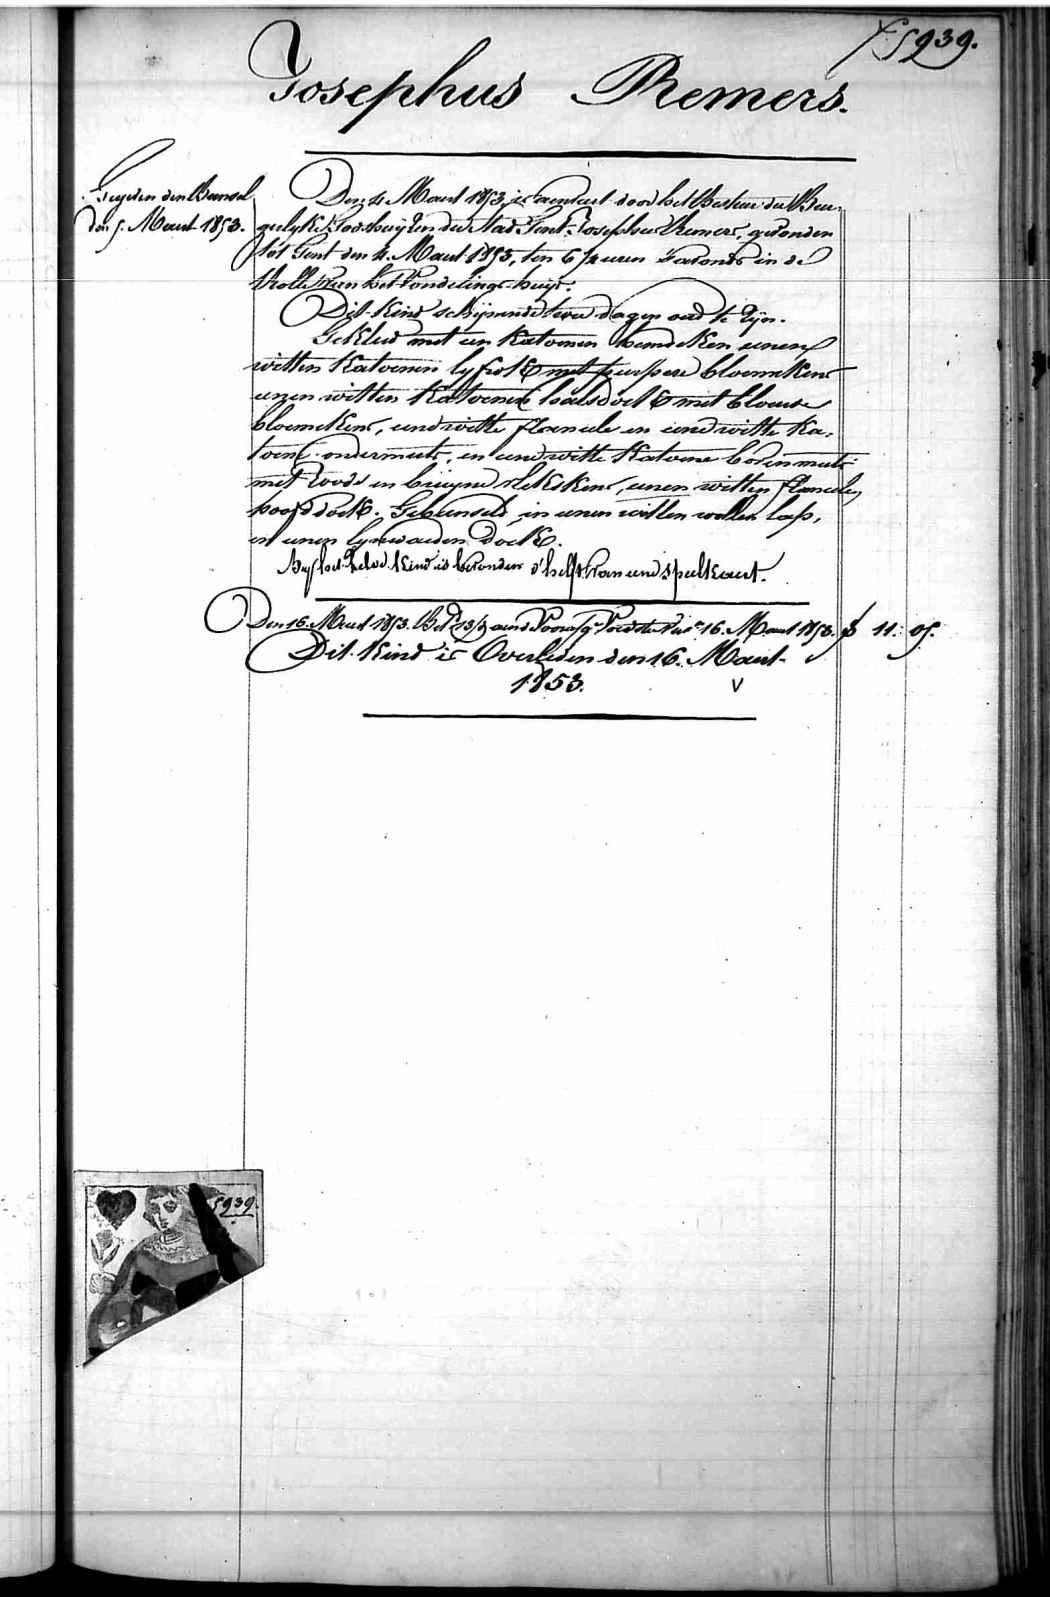 5939.
Josephus Remers.
den Bunsel
den 5. Maert 1853.
Den 4 Maert 1853, is aenveert door het Bestuer der Bur-
gerlyke Godshuyzen der Stad Gent, Josephus Remers, gevonden
tot Gent den 4. Maert 1853, ten 6 ½ uren 's avonds in de
Rolle van het Vondelings-huys.
Dit Kind schynende twee dagen oud te zyn.
Gekleed met een Katoenen hemdeken eenen
witten Katoenen lyfrok met purpere bloemekens
eenen witten Katoenen halsdoek met blauwe
bloemekens, eene witte flanele en eene witte Ka-
toene ondermuts, en eene witte Katoene bovenmuts
met roode en bruyne plekskens, eenen witten flanelen
hoofddoek. Gebunseld in eenen witten wollen lap,
en eenen lynwaeden doek.
By het zelve Kind is bevonden d'helft van eene speelkaert.
Den 16. Maert 1853. 16. Maert 1853. 11: 05.
Dit Kind is Overleden den 16. Maert
1853.
5939.